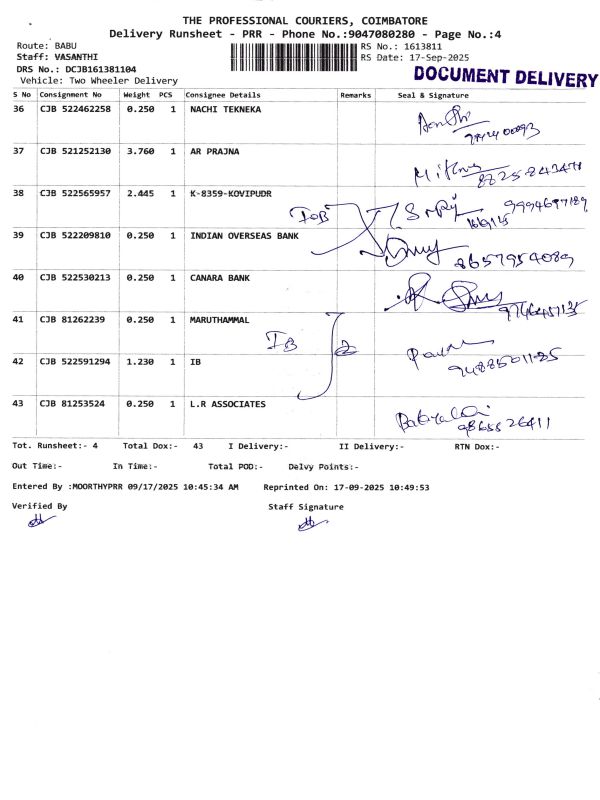 THE PROFESSIONAL COURIERS, COIMBATORE
Delivery Runsheet - PRR - Phone No.:9047080280 - Page No.:4
Route: BABU
RS No.: 1613811
Staff: VASANTHI
RS Date: 17-Sep-2025
DRS No.: DCJB161381104
DOCUMENT DELIVERY
Vehicle: Two Wheeler Delivery
S No Consignment No Weight PCS Consignee Details Remarks Seal & Signature
36 CJB 522462258 0.250 1 NACHI TEKNEKA
37 CJB 521252130 3.760 1 AR PRAJNA
38 CJB 522565957 2.445 1 K-8359-KOVIPUDR
IOB
9994697189
39 CJB 522209810 0.250 1 INDIAN OVERSEAS BANK
8657954089
40 CJB 522530213 0.250 1 CANARA BANK
41 CJB 81262239 0.250 1 MARUTHAMMAL
IB
42 CJB 522591294 1.230 1 IB
43 CJB 81253524 0.250 1 L.R ASSOCIATES
9865526411
Tot. Runsheet:- 4 Total Dox:- 43 I Delivery:- II Delivery:- RTN Dox:-
Out Time:- In Time:- Total POD:- Delvy Points:-
Entered By :MOORTHYPRR 09/17/2025 10:45:34 AM Reprinted On: 17-09-2025 10:49:53
Verified By Staff Signature